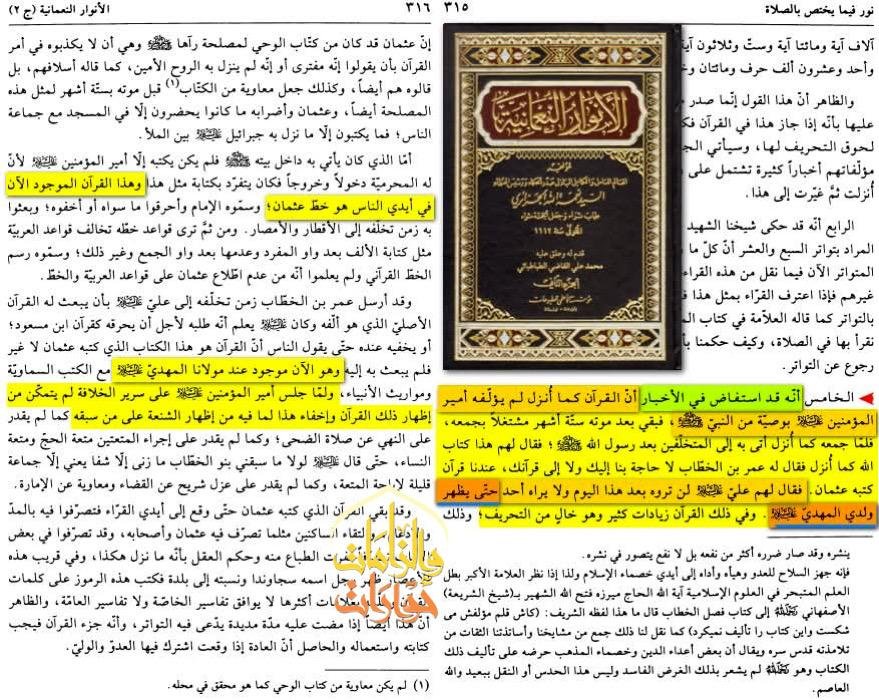 نور فيما يختص بالصلاة
٣١٥
آلاف آية ومائتا آية وستّ وثلاثون آية
وأحد وعشرون ألف حرف ومائتان وخ
والظاهر أنّ هذا القول إنّما صدر م
عليها بأنّه إذا جاز هذا في القرآن فك
لحوق التحريف لها، وسيأتي الج
مؤلفاتهم أخباراً كثيرة تشتمل على
أُنزلت ثمّ غيّرت إلى هذا.
الرابع أنّه قد حكى شيخنا الشهيد
المراد بتواتر السبع والعشر أنّ كلّ ما و
المتواتر الآن فيما نقل من هذه القراء
غيرهم فإذا اعترف القرّاء بمثل هذا ف
بالتواتر كما قاله العلّامة في كتاب الم
نقرأ بها في الصلاة، وكيف حكمنا بأ
رجوع عن التواتر.
الأنوار النعمانية
السيد نعمة الله الجزائري
المتوفى سنة ١١١٢
قدم له وعلق عليه
محمد علي القاضي الطباطبائي
الجزء الثاني
الخامس أنّه قد استفاض في الأخبار أنّ القرآن كما أُنزل لم يؤلّفه أمير
المؤمنين عليه السلام بوصيّة من النبيّ ﷺ، فبقي بعد موته ستّة أشهر مشتغلاً بجمعه،
فلمّا جمعه كما أُنزل أتى به إلى المتخلّفين بعد رسول الله ﷺ؛ فقال لهم هذا كتاب
الله كما أُنزل فقال له عمر بن الخطاب لا حاجة بنا إليك ولا إلى قرآنك، عندنا قرآن
كتبه عثمان. فقال لهم عليّ عليه السلام لن تروه بعد هذا اليوم ولا يراه أحد حتّى يظهر
ولدي المهديّ عليه السلام. وفي ذلك القرآن زيادات كثير وهو خالٍ من التحريف؛ وذلك
ينشره وقد صار ضرره أكثر من نفعه بل لا نفع يتصور في نشره.
فإنه جهز السلاح للعدو وهيأه وأداه إلى أيدي خصماء الإسلام ولذا إذا نظر العلامة الأكبر بطل
العلم المتبحر في العلوم الإسلامية آية الله الحاج ميرزه فتح الله الشهير بـ(شيخ الشريعة)
الأصفهاني إلى كتاب فصل الخطاب قال ما هذا لفظه الشريف: (كاش قلم مؤلفش مى
شكست واين كتاب را تأليف نميكرد) كما نقل لنا ذلك جمع من مشايخنا وأساتذتنا الثقات من
تلامذته قدس سره ويقال أن بعض أعداء الدين وخصماء المذهب حرضه على تأليف ذلك
الكتاب وهو لم يشعر بذلك الغرض الفاسد وليس هذا الحدس أو النقل ببعيد والله
العاصم.
٣١٦
الأنوار النعمانية (ج ٢)
إنّ عثمان قد كان من كتّاب الوحي لمصلحة رآها ﷺ وهي أن لا يكذبوه في أمر
القرآن بأن يقولوا إنّه مفترى أو إنّه لم ينزل به الروح الأمين، كما قاله أسلافهم، بل
قالوه هم أيضاً، وكذلك جعل معاوية من الكتّاب(١) قبل موته بستّة أشهر لمثل هذه
المصلحة أيضاً، وعثمان وأضرابه ما كانوا يحضرون إلّا في المسجد مع جماعة
الناس؛ فما يكتبون إلّا ما نزل به جبرائيل عليه السلام بين الملأ.
أمّا الذي كان يأتي به داخل بيته ﷺ فلم يكن يكتبه إلّا أمير المؤمنين عليه السلام لأنّ
له المحرميّة دخولاً وخروجاً فكان يتفرّد بكتابة مثل هذا وهذا القرآن الموجود الآن
في أيدي الناس هو خطّ عثمان؛ وسمّوه الإمام وأحرقوا ما سواه أو أخفوه؛ وبعثوا
به زمن تخلّفه إلى الأقطار والأمصار. ومن ثمّ ترى قواعد خطّه تخالف قواعد العربيّة
مثل كتابة الألف بعد واو المفرد وعدمها بعد واو الجمع وغير ذلك؛ وسمّوه رسم
الخطّ القرآني ولم يعلموا أنّه من عدم اطّلاع عثمان على قواعد العربيّة والخطّ.
وقد أرسل عمر بن الخطّاب زمن تخلّفه إلى عليّ عليه السلام بأن يبعث له القرآن
الأصليّ الذي هو ألّفه وكان عليه السلام يعلم أنّه طلبه لأجل أن يحرقه كقرآن ابن مسعود؛
أو يخفيه عنده حتّى يقول الناس أنّ القرآن هو هذا الكتاب الذي كتبه عثمان لا غير
فلم يبعث به إليه وهو الآن موجود عند مولانا المهديّ عليه السلام مع الكتب السماويّة
ومواريث الأنبياء، ولمّا جلس أمير المؤمنين عليه السلام على سرير الخلافة لم يتمكّن من
إظهار ذلك القرآن وإخفاء هذا لما فيه من إظهار الشنعة على من سبقه كما لم يقدر
على النهي عن صلاة الضحى؛ وكما لم يقدر على إجراء المتعتين متعة الحجّ ومتعة
النساء، حتّى قال عليه السلام لولا ما سبقني بنو الخطّاب ما زنى إلّا شفا يعني إلّا جماعة
قليلة لإباحة المتعة، وكما لم يقدر على عزل شريح عن القضاء ومعاوية عن الإمارة.
وقد بقي القرآن الذي كتبه عثمان حتّى وقع إلى أيدي القرّاء فتصرّفوا فيه بالمدّ
والإدغام والتقاء الساكنين مثلما تصرّف فيه عثمان وأصحابه، وقد تصرّفوا في بعض
الطباع منه وحكم العقل بأنّه ما نزل هكذا، وفي قريب هذه
الأعصار ظهر رجل اسمه سجاوندا ونسبته إلى بلدة فكتب هذه الرموز على كلمات
أكثرها لا يوافق تفاسير الخاصّة ولا تفاسير العامّة، والظاهر
أنّ هذا أيضاً إذا مضت عليه مدّة مديدة يدّعى فيه التواتر، وأنّه جزء القرآن فيجب
كتابته واستعماله والحاصل أنّ العادة إذا وقعت اشترك فيها العدوّ والوليّ.
(١) لم يكن معاوية من كتاب الوحي كما هو محقق في محله.